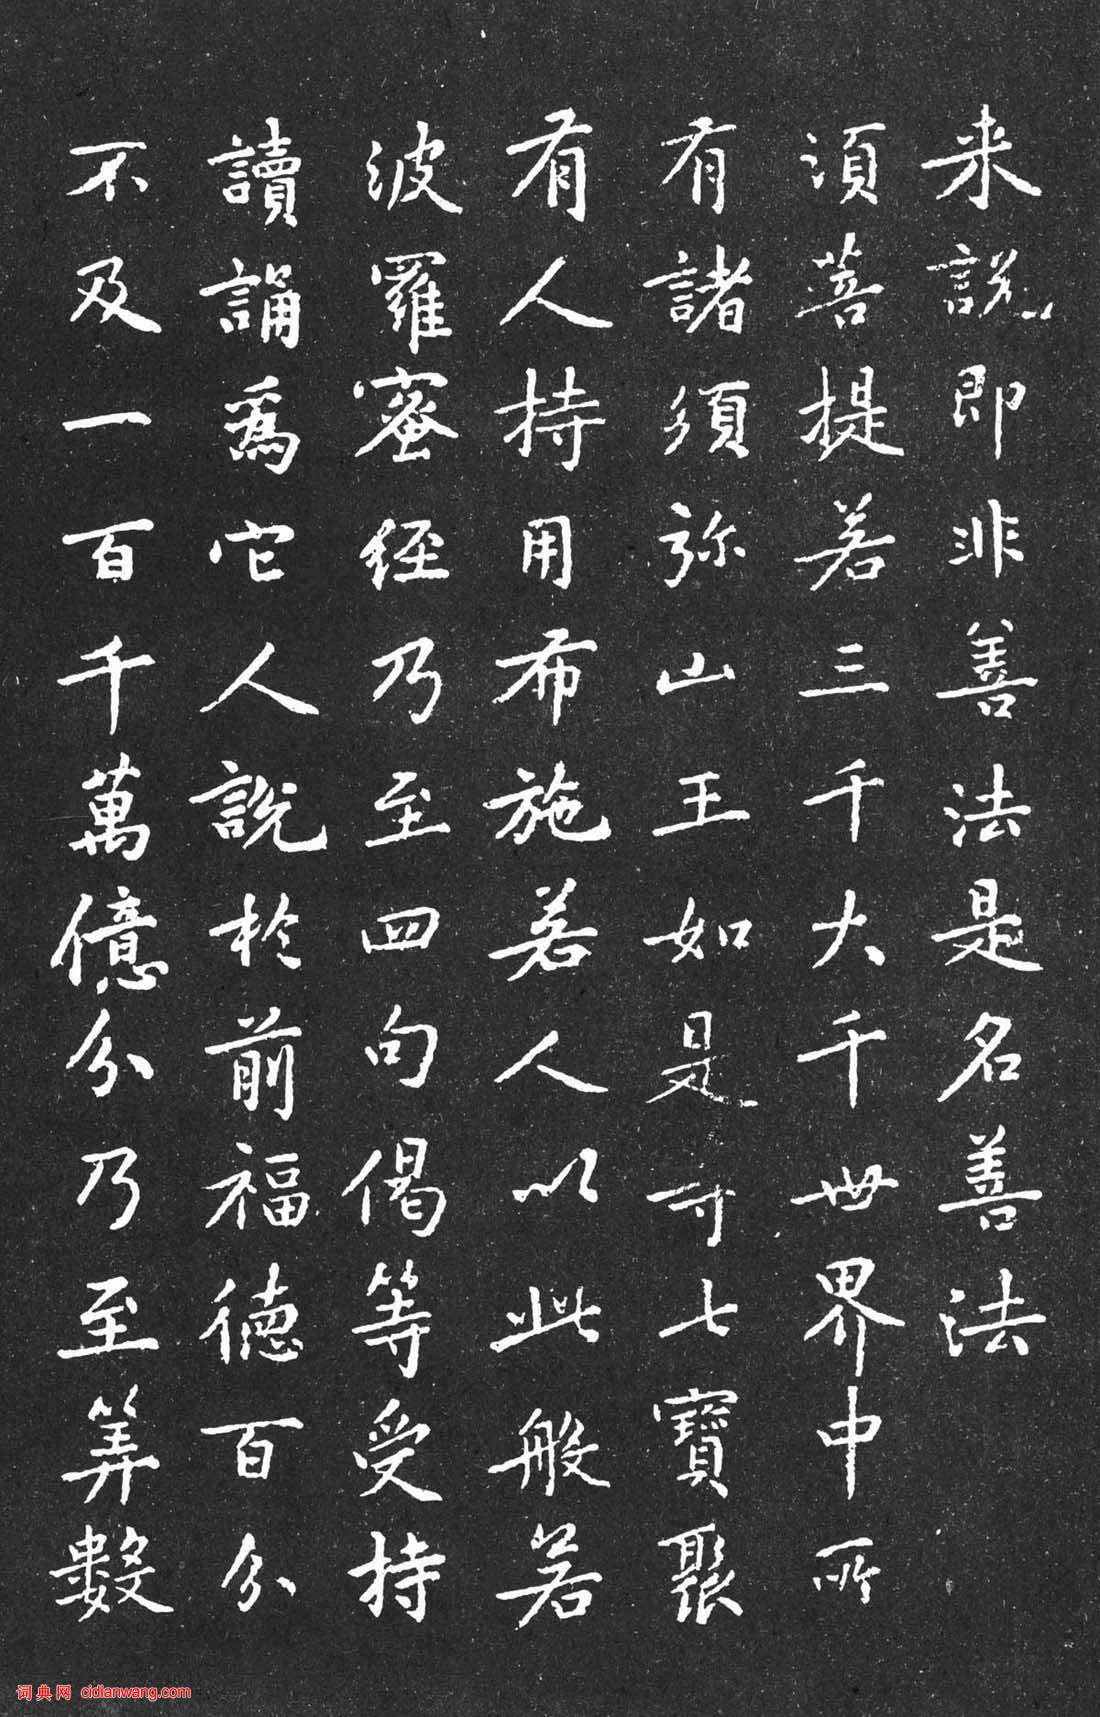 来說即非善法是名善法
須菩提若三千大千世界中所
有諸須弥山王如是等七寶聚
有人持用布施若人以此般若
波羅蜜經乃至四句偈等受持
讀誦爲它人說於前福德百分
不及一百千萬億分乃至筭數
词典网 cidianwang.com